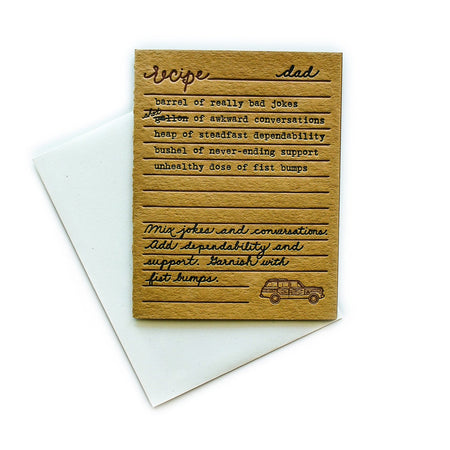 recipe dad
barrel of really bad jokes
gallon of awkward conversations
heap of steadfast dependability
bushel of never-ending support
unhealthy dose of fist bumps
Mix jokes and conversations.
Add dependability and
support. Garnish with
fist bumps.